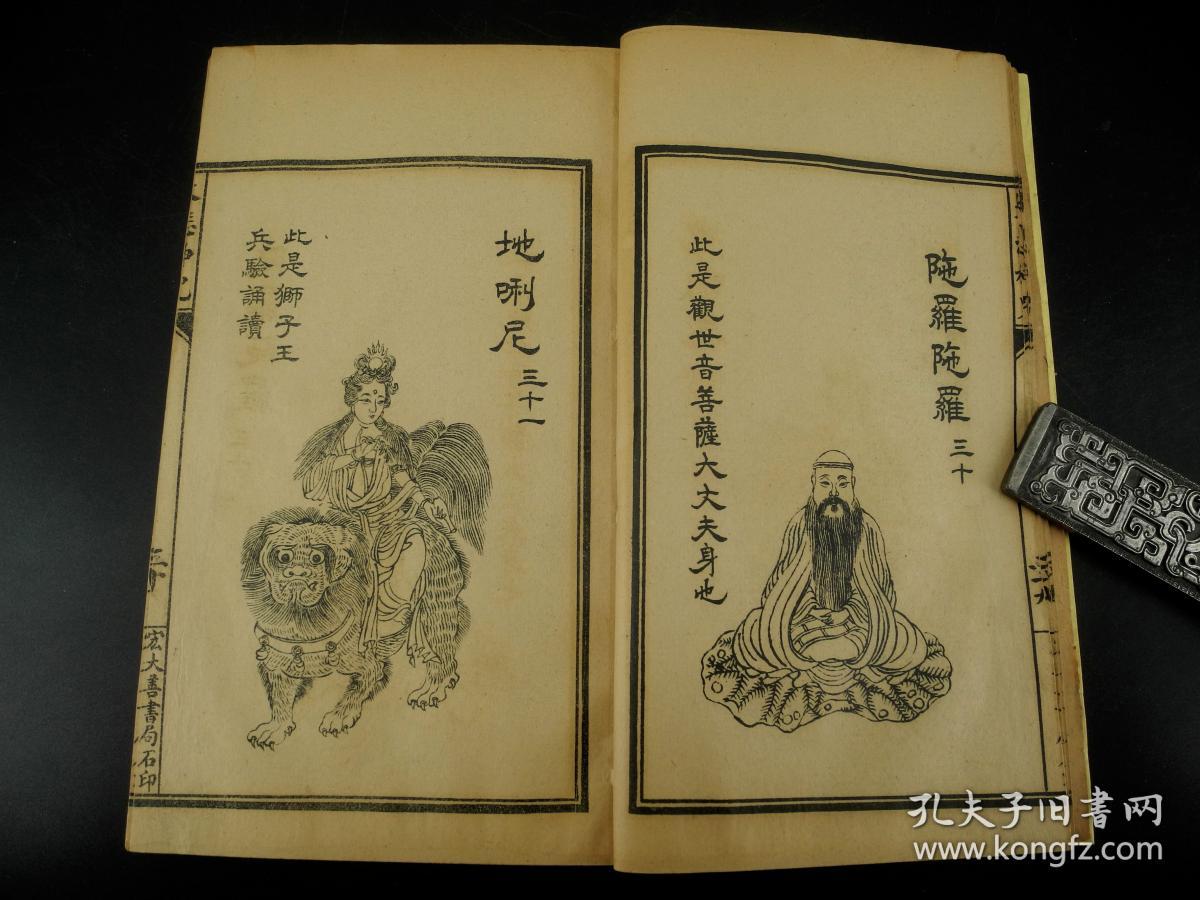 陁羅陁羅 三十
此是觀世音菩薩大丈夫身也
地唎尼 三十一
此是獅子王
兵驗誦讀
宏大善書局石印
孔夫子旧书网
www.kongfz.com